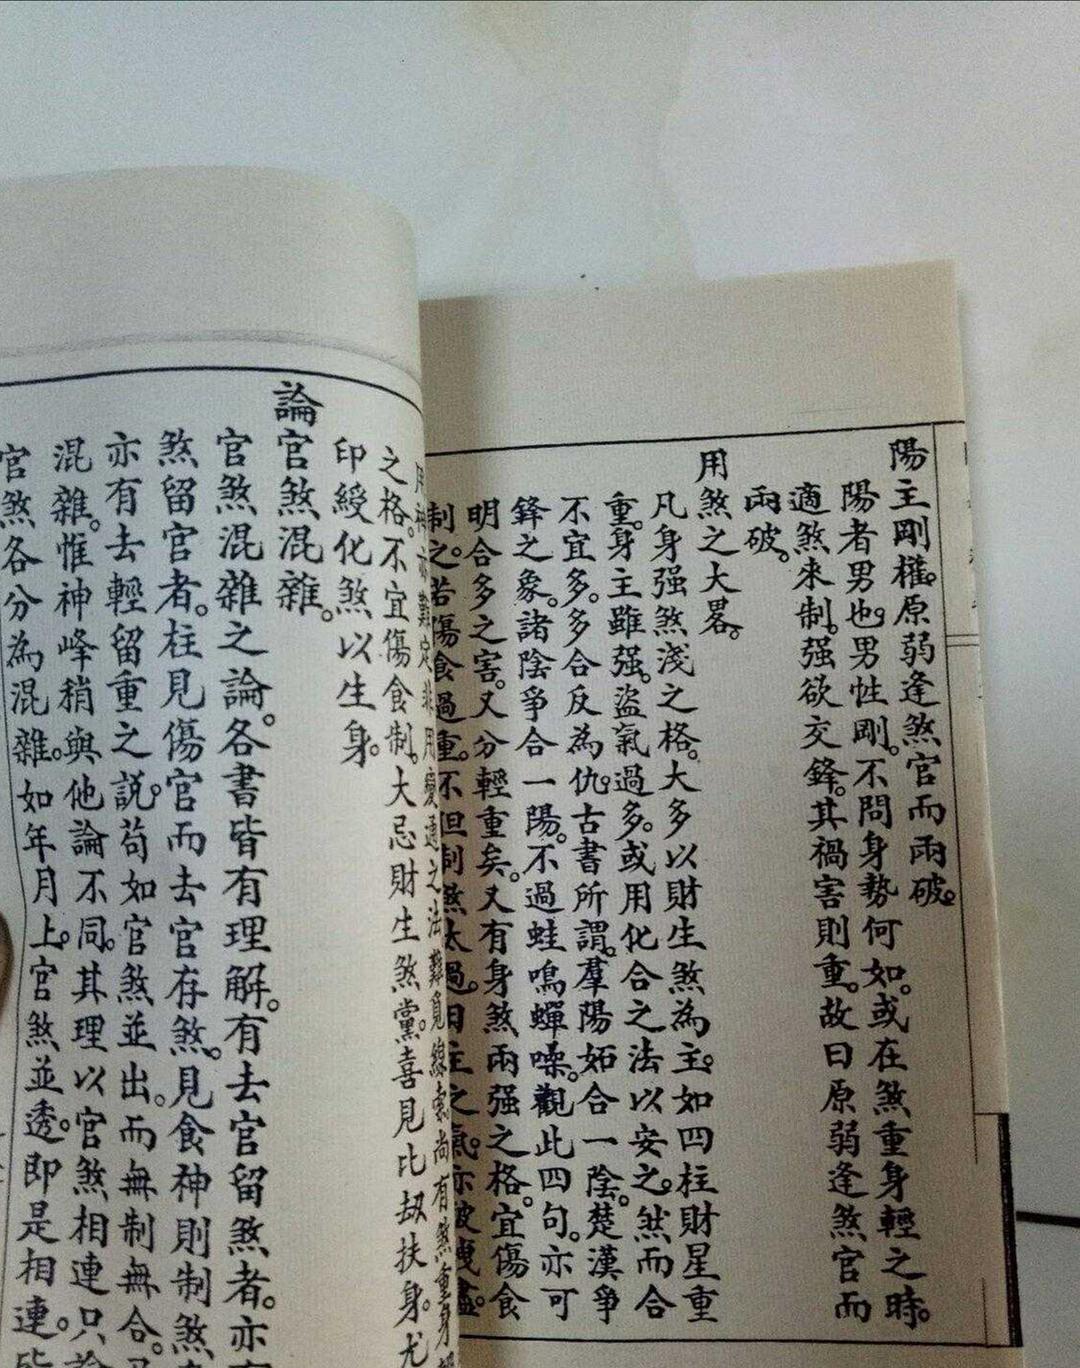 陽主剛權。原弱逢煞官而兩破。
陽者男也。男性剛。不問身勢何如。或在煞重身輕之時。
適煞来制。强欲交鋒。其禍害則重。故曰原弱逢煞官而
兩破。
用煞之大畧。
凡身强煞淺之格。大多以財生煞為主。如四柱財星重
重。身主雖强。盜氣過多。或用化合之法以安之。然而合
不宜多。多合反為仇。古書所謂。羣陽妬合一陰。楚漢爭
鋒之象。諸陰爭合一陽。不過蛙鳴蟬噪。觀此四句。亦可
明合多之害。又分輕重矣。又有身煞兩强之格。宜傷食
制之。若傷食過重。不但制煞太過。日主之氣。亦被洩盡。
用神亦難定。非用變通之法難覓線索。尚有煞重身
之格。不宜傷食制。大忌財生煞黨。喜見比刼扶身。尤
印綬化煞以生身。
論官煞混雜。
官煞混雜之論。各書皆有理解。有去官留煞者。亦
煞留官者。柱見傷官而去官存煞。見食神則制煞
亦有去輕留重之説。苟如官煞並出。而無制無合。
混雜。惟神峰稍與他論不同。其理以官煞相連只論
官煞各分為混雜。如年月上。官煞並透。即是相連。皆